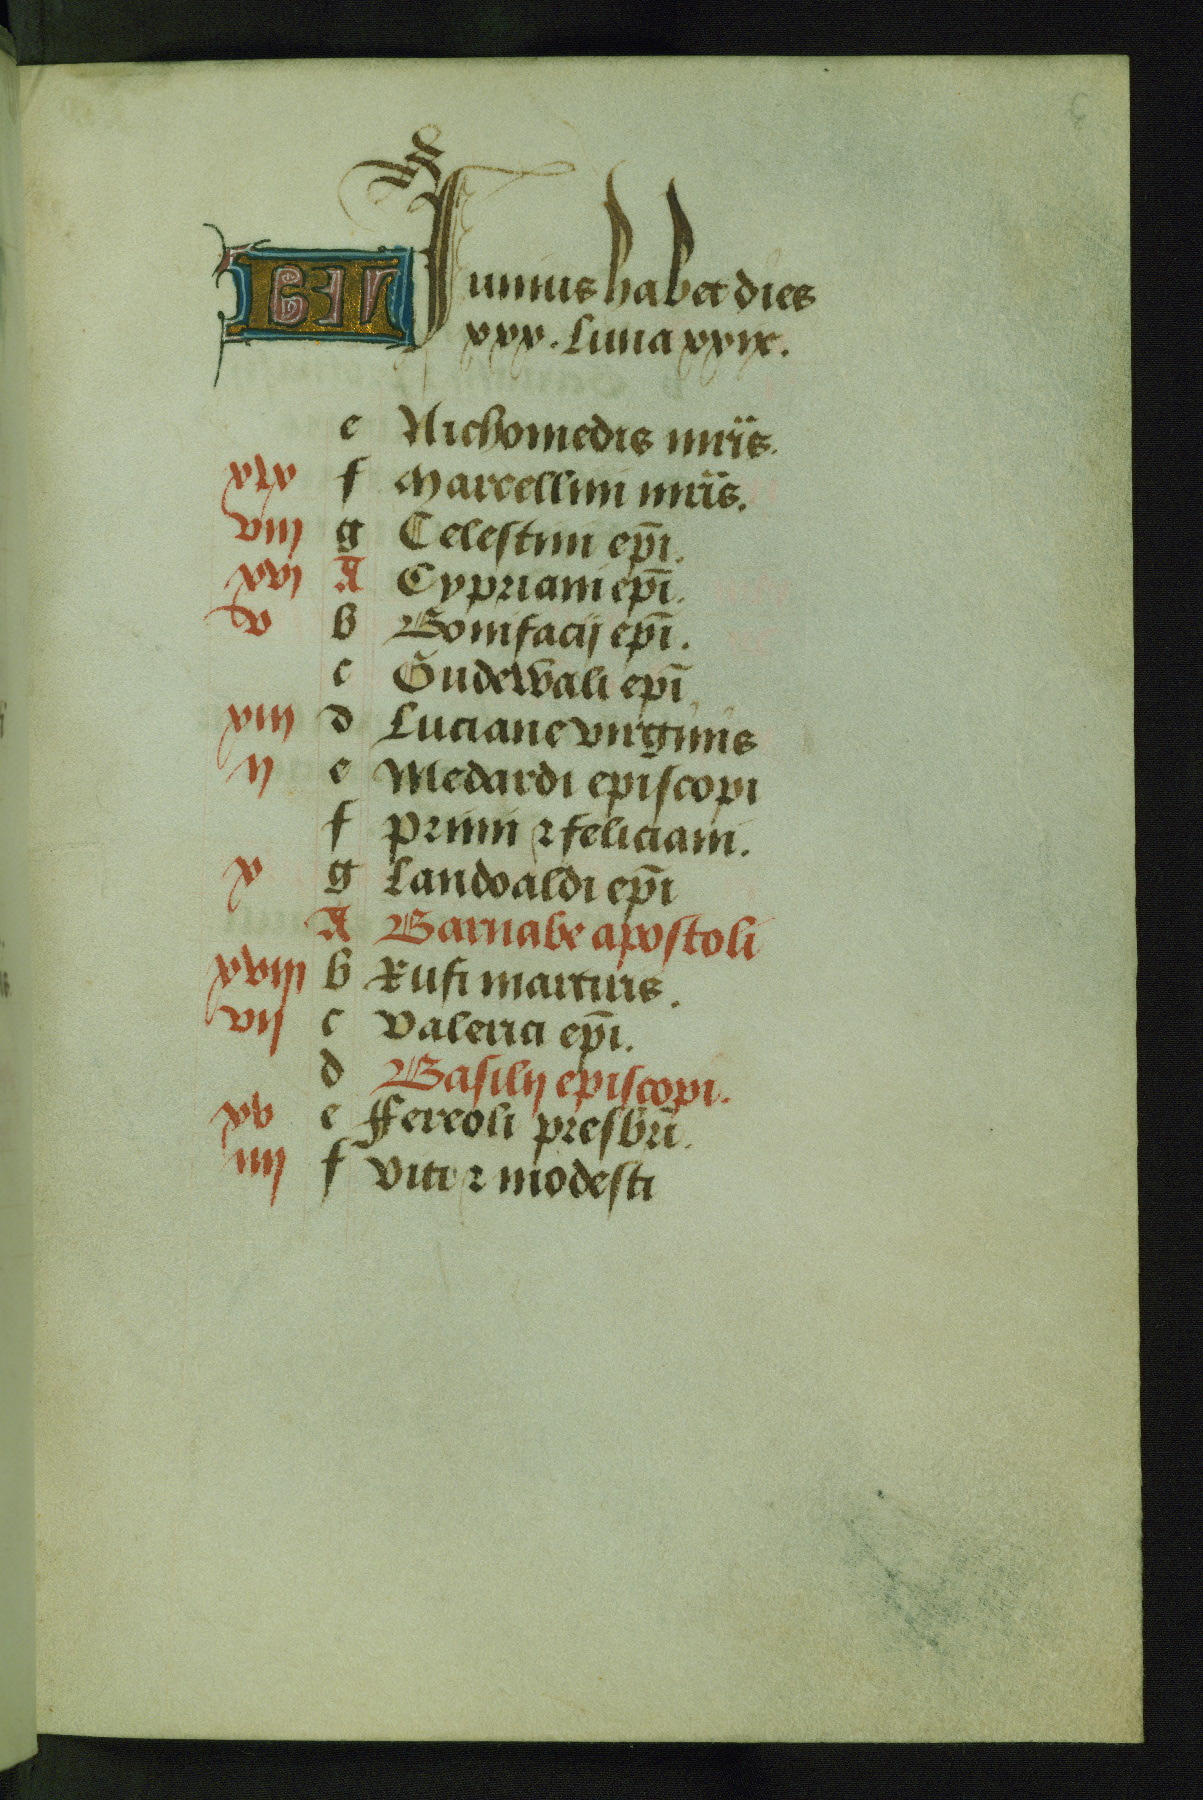 Iunius habet dies
xxx. Luna xxix.
e Nichomedis mr̄is.
xix f Marcellini mr̄is.
viij g Celestini ep̄i.
xvj A Cypriani ep̄i.
v b Bonifacij ep̄i.
c Gudewali ep̄i
xiij d Luciane virginis
ij e Medardi episcopi
f Primi ⁊ feliciani.
x g Landoaldi ep̄i
A Barnabe apostoli
xviij b Rufi martiris.
vij c Valerici ep̄i.
d Basilij episcopi.
xv e ffereoli presbr̄i.
iiij f Viti ⁊ modesti